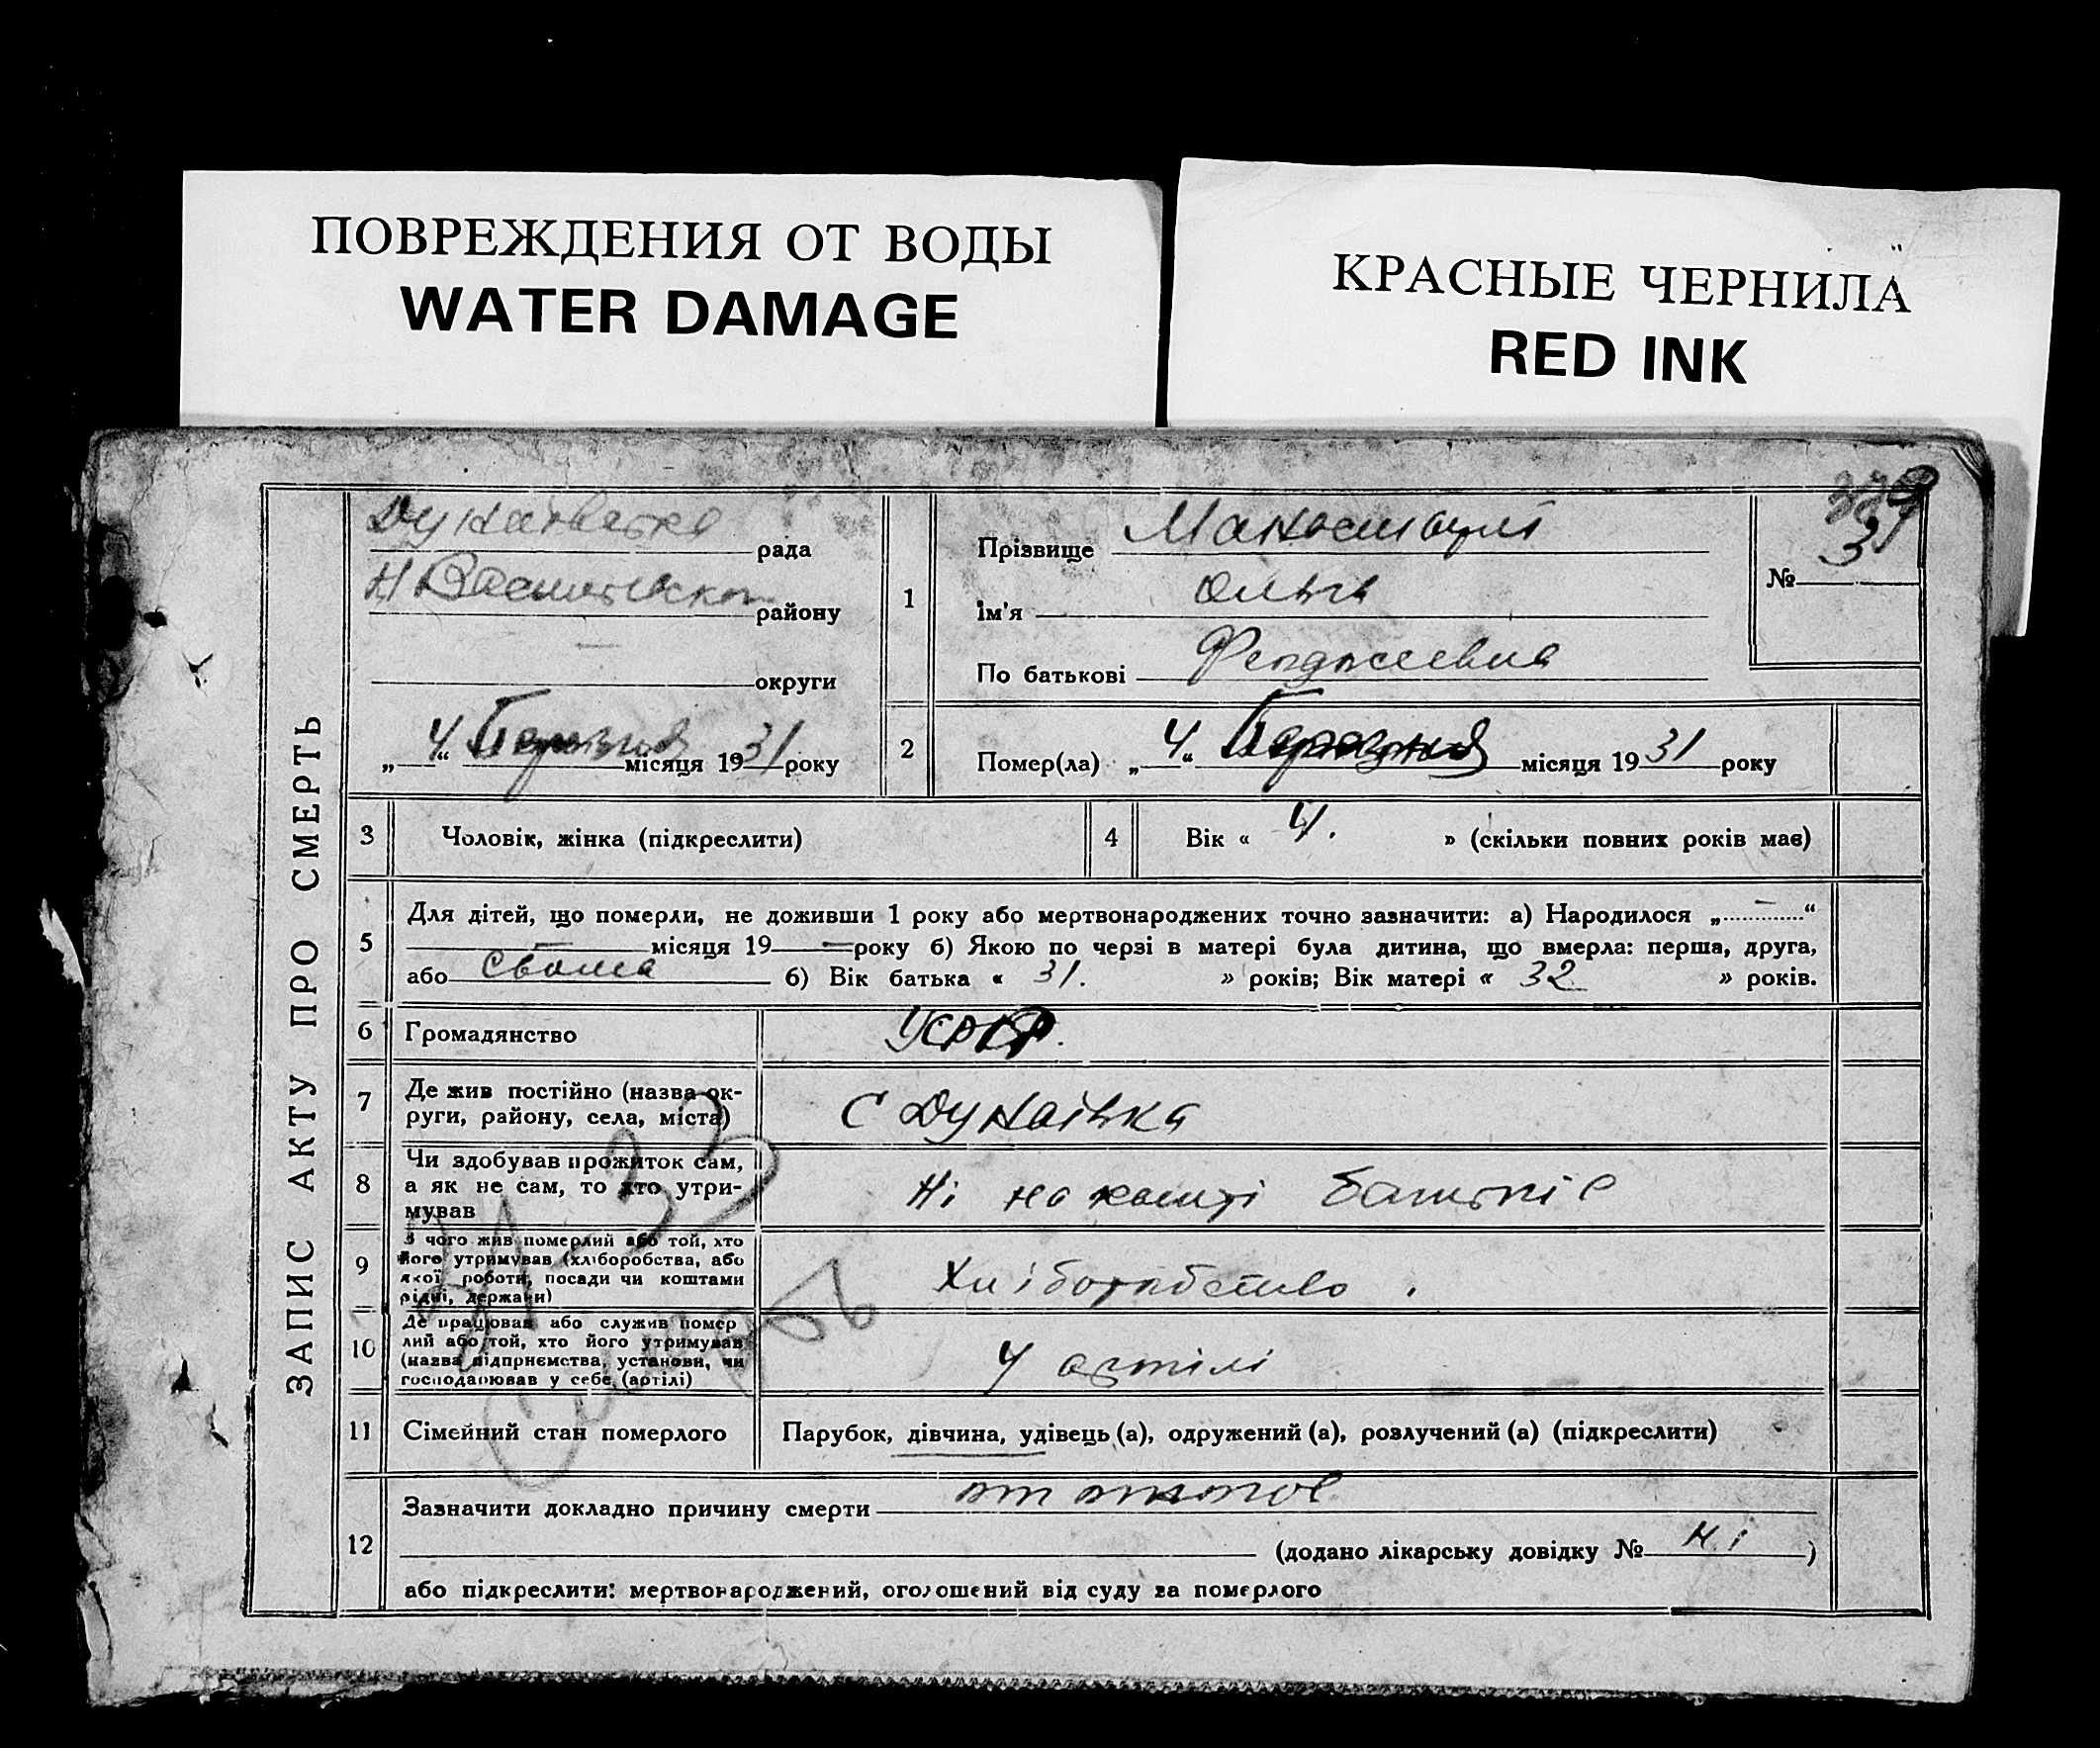 ПОВРЕЖДЕНИЯ ОТ ВОДЫ
WATER DAMAGE
КРАСНЫЕ ЧЕРНИЛА
RED INK
ЗАПИС АКТУ ПРО СМЕРТЬ
рада
району
округи
„4“ місяця 1931 року
1
Прізвище
Ім'я Ольга
По батькові
№ 31
2
Помер(ла) „4“ місяця 1931 року
3 Чоловік, жінка (підкреслити)
4 Вік « 4. » (скільки повних років має)
5
Для дітей, що померли, не доживши 1 року або мертвонароджених точно зазначити: а) Народилося „ “
місяця 19 — року б) Якою по черзі в матері була дитина, що вмерла: перша, друга,
або б) Вік батька « 31. » років; Вік матері « 32 » років.
6 Громадянство УСРР.
7 Де жив постійно (назва ок-
руги, району, села, міста)
С Дунаівка
8 Чи здобував прожиток сам,
а як не сам, то хто утри-
мував
Ні на кошті батьків
9 З чого жив померлий або той, хто
його утримував (хліборобства, або
якої роботи, посади чи коштами
рідні, держави)
Хліборобство.
10 Де працював або служив помер
лий або той, хто його утримував
(назва підпрнємства, установи, чи
господарював у себе (артілі)
У артілі
31-33
Смерть
11 Сімейний стан померлого
Парубок, дівчина, удівець (а), одружений (а), розлучений (а) (підкреслити)
12
Зазначити докладно причину смерти
(додано лікарську довідку № Ні )
або підкреслити: мертвонароджений, оголошений від суду за померлого